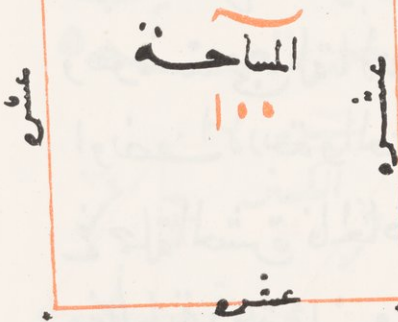 المساحة
١٠٠
عشر
عشر
عشر